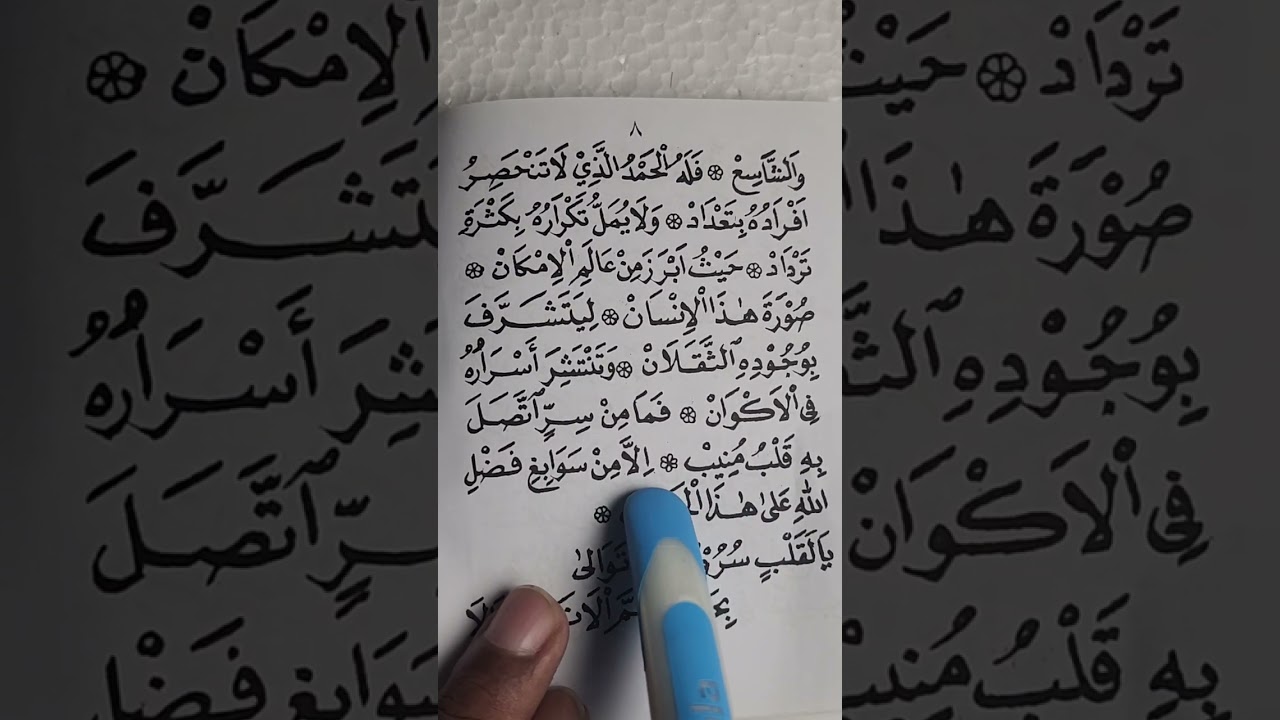 ٨
وَالتَّاسِعْ ۞ فَلَهُ الْحَمْدُ الَّذِيْ لَاتَنْحَصِرُ
اَفْرَادُهُ بِتَعْدَادْ ۞ وَلَايُمَلُّ تَكْرَارُهُ بِكَثْرَةِ
تَرْدَادْ ۞ حَيْثُ اَبْرَزَ مِنْ عَالَمِ الْاِمْكَانْ ۞
صُوْرَةَ هٰذَا الْاِنْسَانْ ۞ لِيَتَشَرَّفَ
بِوُجُوْدِهِ الثَّقَلَانْ ۞ وَتَنْتَشِرَ أَسْرَارُهُ
فِي الْاَكْوَانْ ۞ فَمَا مِنْ سِرٍّ اتَّصَلَ
بِهِ قَلْبُ مُنِيْبْ ۞ اِلَّا مِنْ سَوَابِغِ فَضْلِ
اللهِ عَلىٰ هٰذَا ۞
يَالَقَلْبٍ تَوَالىٰ